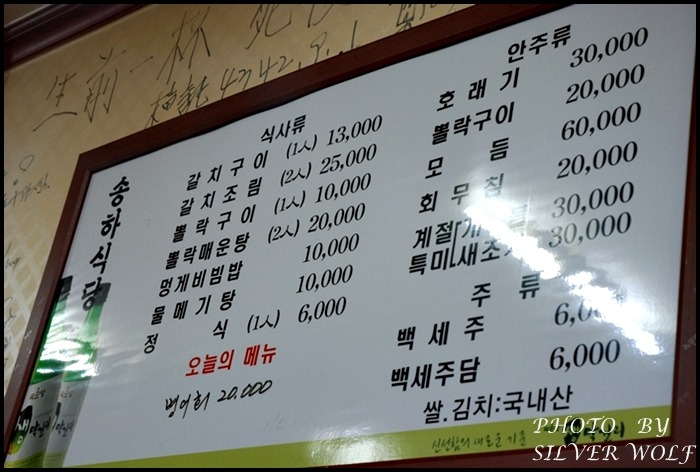 生前一杯
송하식당
식사류
갈치구이 (1人) 13,000
갈치조림 (2人) 25,000
뽈락구이 (1人) 10,000
뽈락매운탕 (2人) 20,000
멍게비빔밥 10,000
물메기탕 10,000
정식 (1人) 6,000
오늘의 메뉴
병어회 20.000
안주류
호래기 30,000
뽈락구이 20,000
모듬 60,000
회무침 20,000
계절 30,000
특미 30,000
주류
백세주 6,000
백세주담 6,000
쌀.김치:국내산
신선함의 새로운 기준
생
PHOTO BY
SILVER WOLF